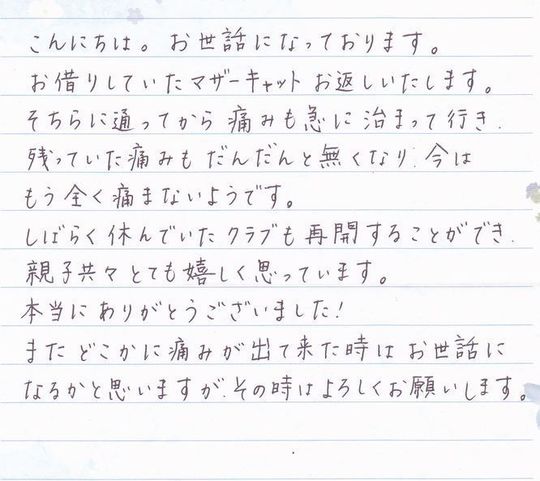 こんにちは。お世話になっております。
お借りしていたマザーキャットお返しいたします。
そちらに通ってから痛みも急に治まって行き、
残っていた痛みもだんだんと無くなり、今は
もう全く痛まないようです。
しばらく休んでいたクラブも再開することができ、
親子共々とても嬉しく思っています。
本当にありがとうございました!
またどこかに痛みが出て来た時はお世話に
なるかと思いますが、その時はよろしくお願いします。